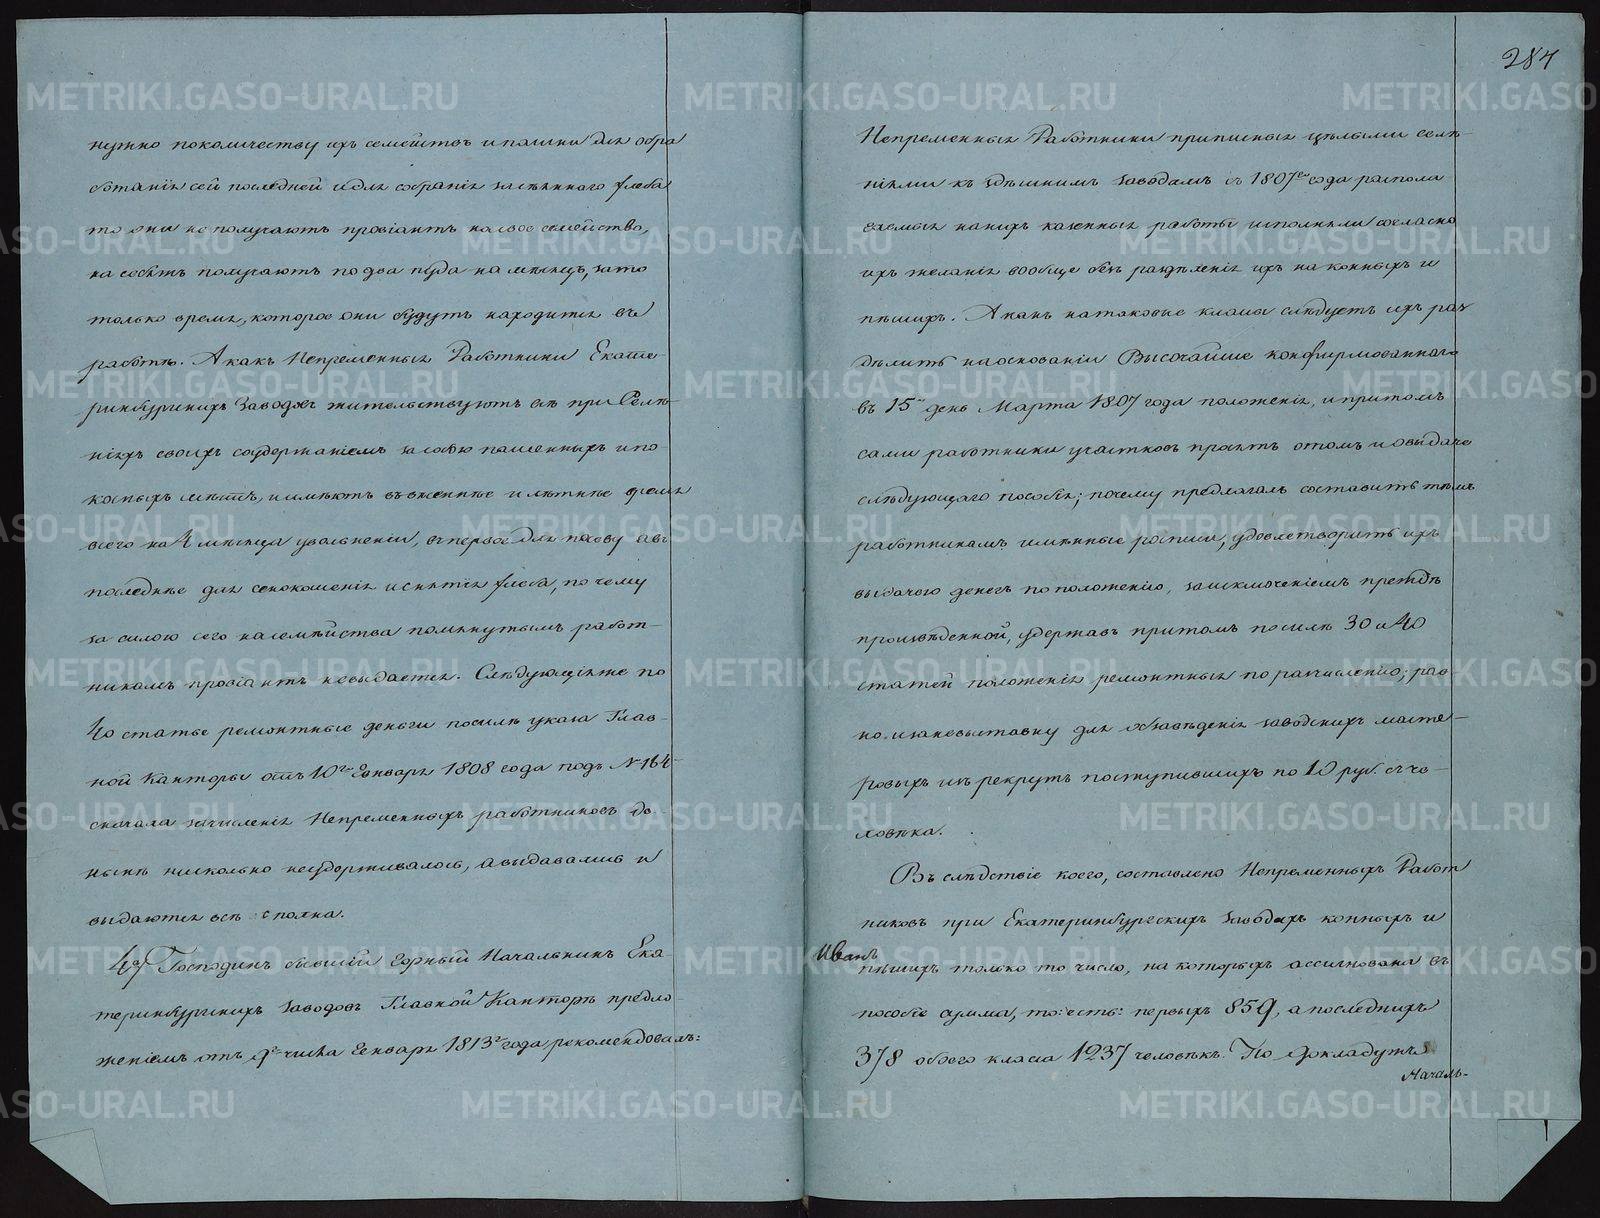 нужно поколичеству ихъ семействъ и пашни для обра
ботанія сей последней идля собранія засѣяннаго хлеба
то они не получаютъ провіантъ на свое семейство,
на собя получаютъ по два пуда на мѣсяцъ, зато
только время, которое они будутъ находится въ
работѣ. А какъ Непременныя Работники Екате-
ринбургскихъ Заводовъ жительствуютъ всѣ при Селѣ-
ніяхъ своихъ содержаніемъ за собою пашенныхъ и по
косныхъ мѣстъ, и имѣютъ въ весеннѣе и лѣтнѣе время
всего на 4 мѣсяца увольненіи, въ первое для посеву а въ
последнѣе для сенокошенія и снятія хлеба, по чему
за силою сего на семѣйства помянутымъ работ-
никамъ провіантъ невыдается. Слѣдующіяже по
40 статье ремонтные деньги посилѣ указа Глав-
ной Канторы отъ 10го Генваря 1808 года подъ № 164
сначала зачисленія Непременныхъ работниковъ до
нынѣ нисколько неудерживалось, а выдавались и
выдаются всѣ сполна.
4е) Господинъ бывшій Горный Начальникъ Ека-
теринбургскихъ заводовъ Главной Канторѣ предло-
женіемъ отъ 9го числа Генваря 1813го года рекомендовалъ:
284
Непременныя Работники приписныя цѣлыми селѣ-
ніями къ здѣшнимъ заводамъ съ 1807го года распола
гаемыя на нихъ казенныя работы исполняли согласно
ихъ желанія вообще безъ раздѣленія ихъ на конныхъ и
пѣшихъ. А какъ на таковые класы слѣдуетъ ихъ раз
дѣлить на основаніи Высочайше конфирмованнаго
въ 15 день Марта 1807 года положенія, и притомъ
сами работники участковъ просятъ отомъ и овыдаче
слѣдующаго пособія; почему предлагалъ составить тѣмъ
работникамъ имянные росписи, удовлетворить ихъ
выдачею денегъ по положенію, заисключеніемъ прежде
произведенной, удержавъ притомъ по силѣ 30 и 40
статей положенія ремонтныя по разчисленію; рав
но и заневыставку для обзавѣденія заводскихъ масте-
ровыхъ изъ рекрутъ поступившихъ по 10 руб. съ че-
ловѣка.
Въ слѣдствіе коего, составлено Непременныхъ Работ
никовъ при Екатеринбургскихъ заводахъ конныхъ и
Иванъ
пѣшихъ только то число, на которыхъ ассигнована въ
пособіе сумма, то: есть: первыхъ 859, а последнихъ
378 обоего класа 1237 человѣкъ. По докладу
Началь-
METRIKI.GASO-URAL.RU